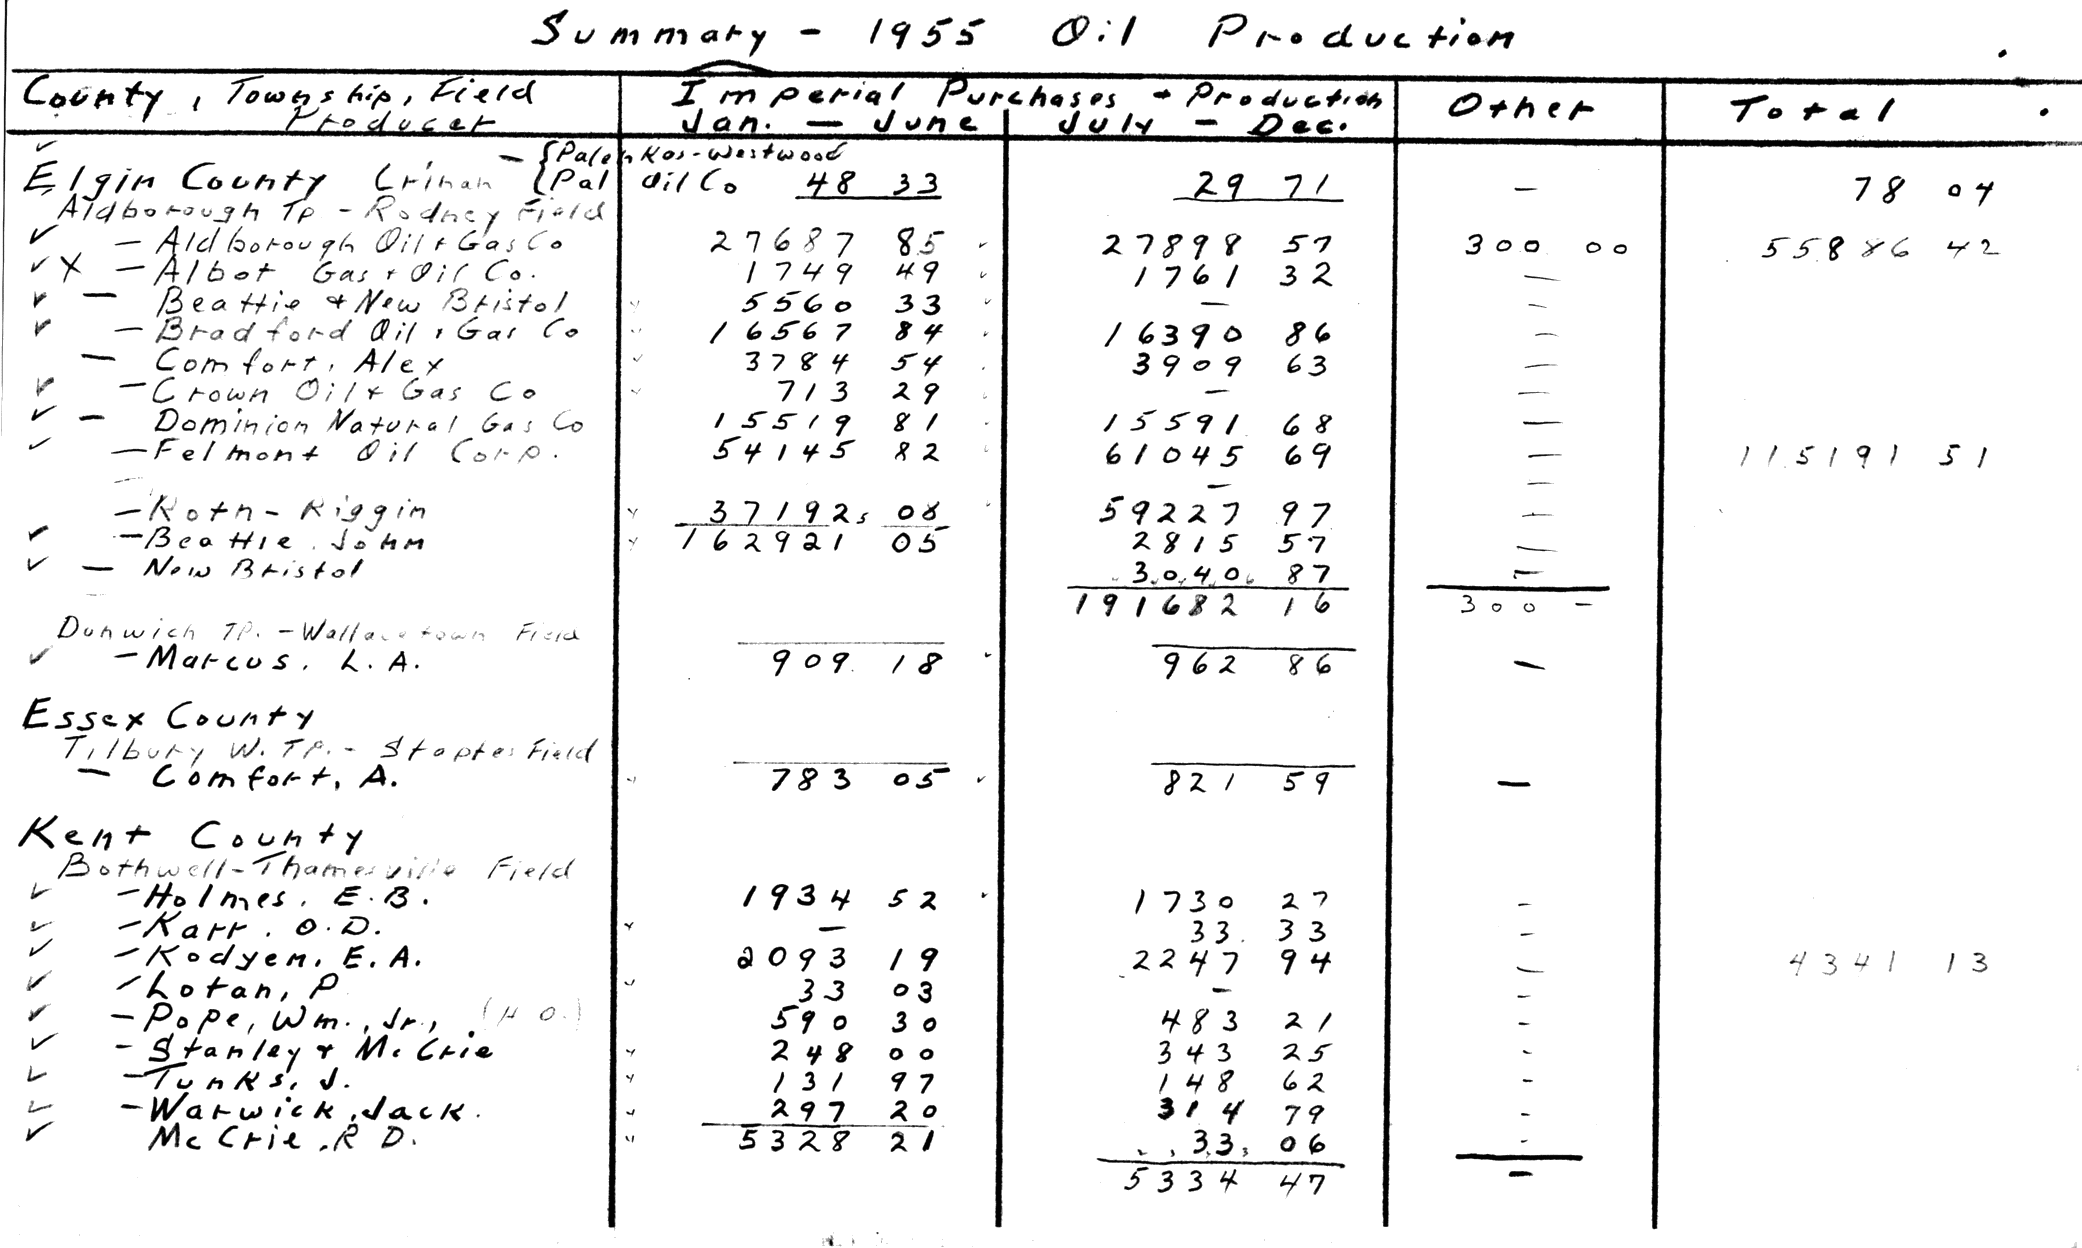 Summary - 1955 Oil Production
County, Township, Field Producer Imperial Purchases + Production Jan. - June July - Dec. Other Total
- {Palenkas-Westwood
Elgin County Crinan {Pal Oil Co 48 33 29 71 - 78 04
Aldborough Tp - Rodney Field
✓ - Aldborough Oil + Gas Co 27687 85 27898 57 300 00 55886 42
✓ X - Albot Gas + Oil Co. 1749 49 1761 32 -
✓ - Beattie + New Bristol 5560 33 - -
✓ - Bradford Oil + Gas Co 16567 84 16390 86 -
- Comfort, Alex 3784 54 3909 63 -
✓ - Crown Oil + Gas Co 713 29 - -
✓ - Dominion Natural Gas Co 15519 81 15591 68 -
✓ - Felmont Oil Corp. 54145 82 61045 69 - 115191 51
- -
- Roth - Riggin 37192 08 59227 97 -
✓ - Beattie, John 162921 05 2815 57 -
✓ - New Bristol 3040 87 -
191682 16 300 -
Dunwich TP. - Wallacetown Field
✓ - Marcus, L. A. 909 18 962 86 -
Essex County
Tilbury W. TP. - Staples Field
- Comfort, A. 783 05 821 59 -
Kent County
Bothwell - Thamesville Field
✓ - Holmes, E. B. 1934 52 1730 27 -
✓ - Karr, O. D. - 33 33 -
✓ - Kodyen, E. A. 2093 19 2247 94 - 4341 13
✓ - Lotan, P 33 03 - -
✓ - Pope, Wm., Jr., (H O.) 590 30 483 21 -
✓ - Stanley + McCrie 248 00 343 25 -
✓ - Tunks, J. 131 97 148 62 -
✓ - Warwick, Jack. 297 20 314 79 -
✓ McCrie, R D. 5328 21 33 06 -
5334 47 -